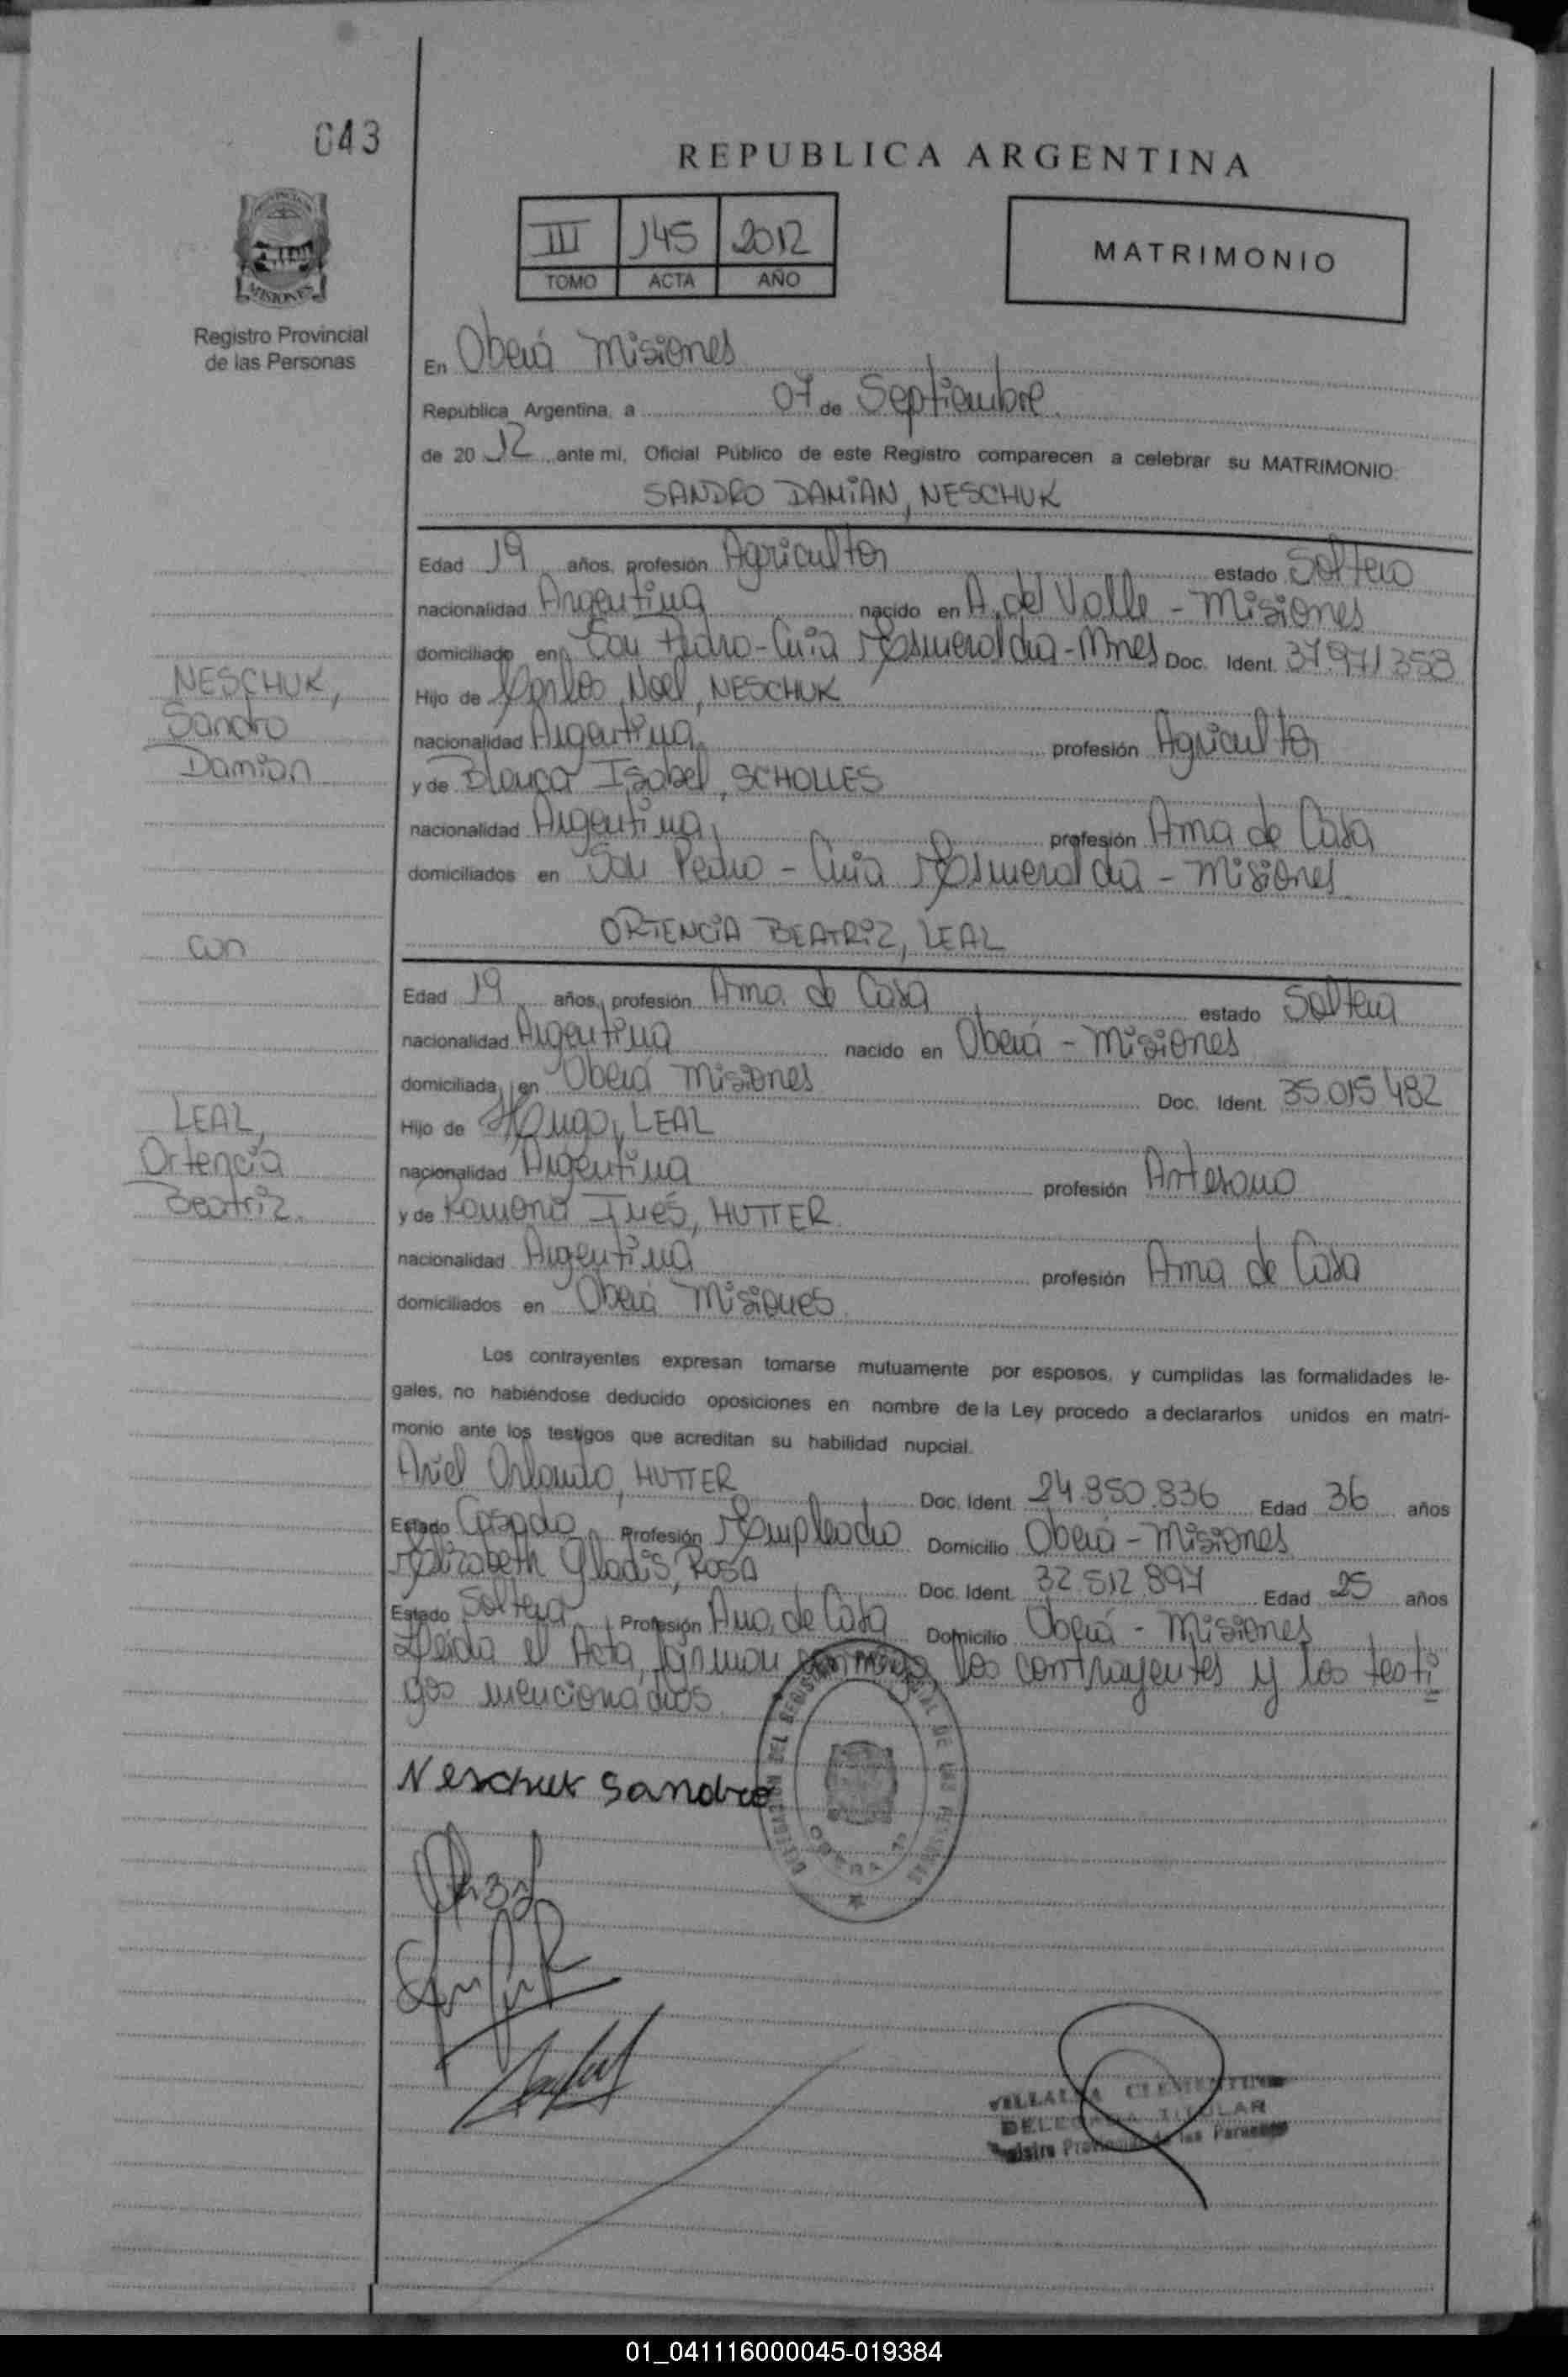 043
REPUBLICA ARGENTINA
III 145 2012
TOMO ACTA AÑO
MATRIMONIO
MISIONES
Registro Provincial
de las Personas
En Oberá Misiones
Republica Argentina, a 07 de Septiembre
de 20 12 ante mi, Oficial Público de este Registro comparecen a celebrar su MATRIMONIO:
SANDRO DAMIAN, NESCHUK
Edad 19 años, profesión Agricultor estado Soltero
nacionalidad Argentina nacido en A. del Valle - Misiones
domiciliado en San Pedro - Cnia Esmeralda - Mnes Doc. Ident. 37.971.353
NESCHUK,
Sandro
Damian
Hijo de Carlos Noel, NESCHUK
nacionalidad Argentina profesión Agricultor
y de Blanca Isabel, SCHOLLES
nacionalidad Argentina profesión Ama de Casa
domiciliados en San Pedro - Cnia Esmeralda - Misiones
con
ORTENCIA BEATRIZ, LEAL
Edad 19 años, profesión Ama de Casa estado Soltera
nacionalidad Argentina nacido en Oberá - Misiones
domiciliada en Oberá Misiones Doc. Ident. 35.015.482
LEAL,
Ortencia
Beatriz.
Hijo de Hugo, LEAL
nacionalidad Argentina profesión Artesano
y de Ramona Inés, HUTTER
nacionalidad Argentina profesión Ama de Casa
domiciliados en Oberá Misiones
Los contrayentes expresan tomarse mutuamente por esposos, y cumplidas las formalidades le-
gales, no habiéndose deducido oposiciones en nombre de la Ley procedo a declararlos unidos en matri-
monio ante los testigos que acreditan su habilidad nupcial.
Ariel Orlando, HUTTER Doc. Ident. 24.950.836 Edad 36 años
Estado Casado Profesión Empleado Domicilio Oberá - Misiones
Elizabeth Gladis, ROSA Doc. Ident. 32.512.897 Edad 25 años
Estado Soltera Profesión Ama de Casa Domicilio Oberá - Misiones
Leida el Acta, firman conmigo los contrayentes y los testi
gos mencionados.
Neschuk Sandro
DELEGACION DEL REGISTRO PROVINCIAL DE LAS PERSONAS
OBERA
CLEMENTINA
DELEGADA TITULAR
Registro Provincial de las Personas
01_041116000045-019384